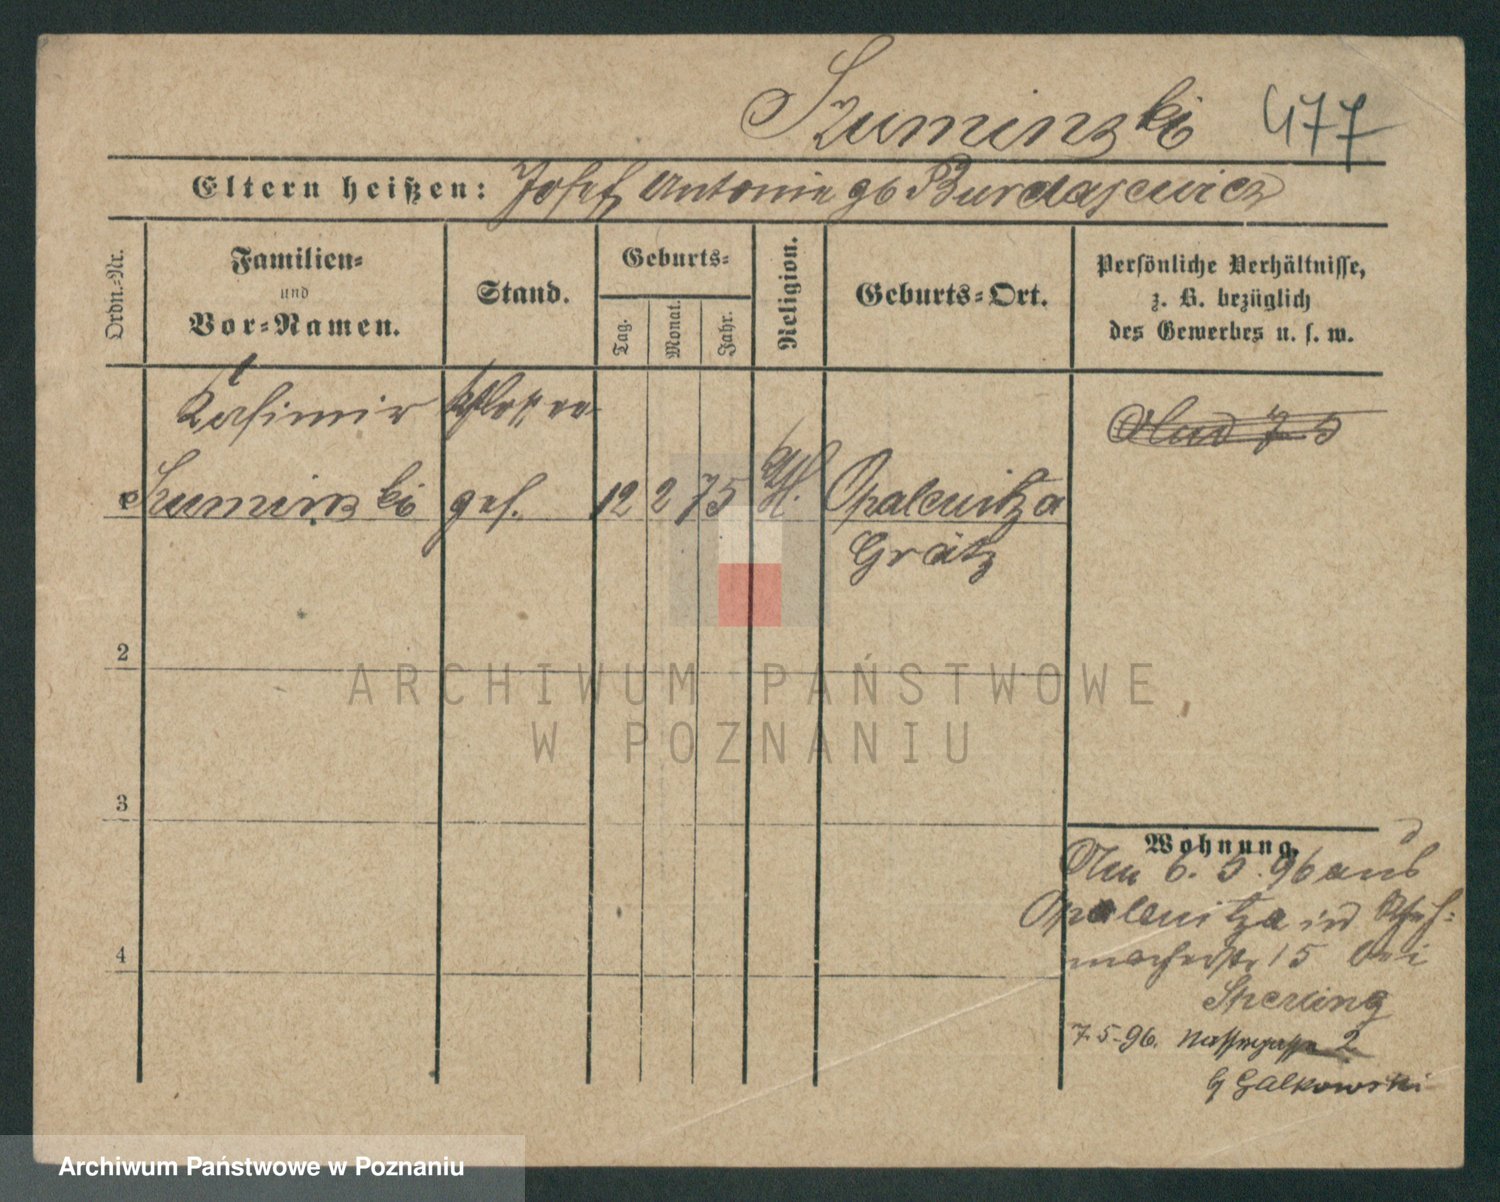 Szuminski 477
Eltern heißen: Josef, Antonie gb Burdajewicz
Ordn.-Nr.
Familien-
und
Vor-Namen.
Stand.
Geburts-
Tag.
Monat.
Jahr.
Religion.
Geburts-Ort.
Persönliche Verhältnisse,
z. B. bezüglich
des Gewerbes u. s. w.
Kasimir
Szuminski ges. 12 2 75 Opalenitza
Grätz
2
3
4
Wohnung.
Am 6. 5. 96 aus
Opalenitza in Schuh-
macherstr 15 bei
Sperling
7.5.96. Nassegasse 2
b Galkowski
ARCHIWUM PAŃSTWOWE
W POZNANIU
Archiwum Państwowe w Poznaniu